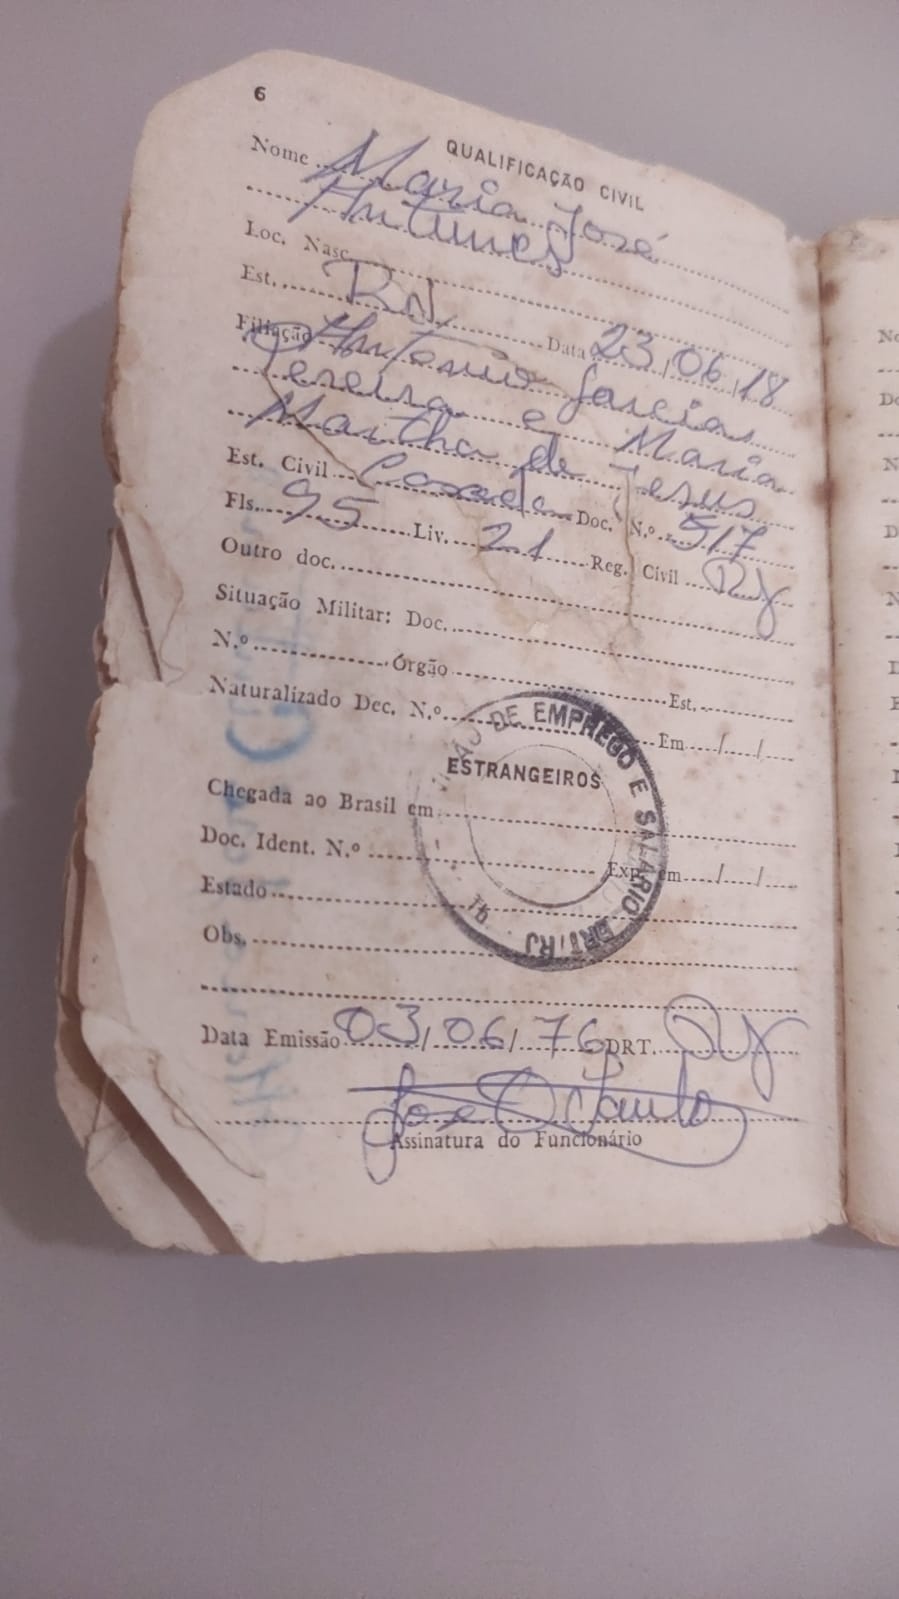 6
QUALIFICAÇÃO CIVIL
Nome Maria José
Antunes
Loc. Nasc.
Est. RN Data 23/06/18
Filiação Antonio Garcias
Pereira e Maria
Martha de Jesus
Est. Civil Casada Doc. N.º 517
Fls. 95 Liv. 21 Reg. Civil RJ
Outro doc.
Situação Militar: Doc.
N.º Órgão Est.
Naturalizado Dec. N.º Em / /
ESTRANGEIROS
Chegada ao Brasil em
Doc. Ident. N.º Exp. em / /
Estado
Obs.
DE EMPREGO E SALARIO DRT/RJ
Data Emissão 03/06/76 DRT. RJ
Jose O Santo
Assinatura do Funcionário